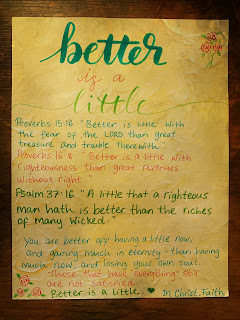 better
is a
little
Proverbs 15:16 "Better is little with
the fear of the LORD than great
treasure and trouble therewith."
Proverbs 16:8 "Better is a little with
righteousness than great revenues
without right."
Psalm 37:16 "A little that a righteous
man hath is better than the riches
of many wicked."
You are better off having a little now,
and gaining much in eternity - than having
much now, and losing your own soul.
Those that have "everything" still
are not satisfied.
Better is a little. In Christ, Faith